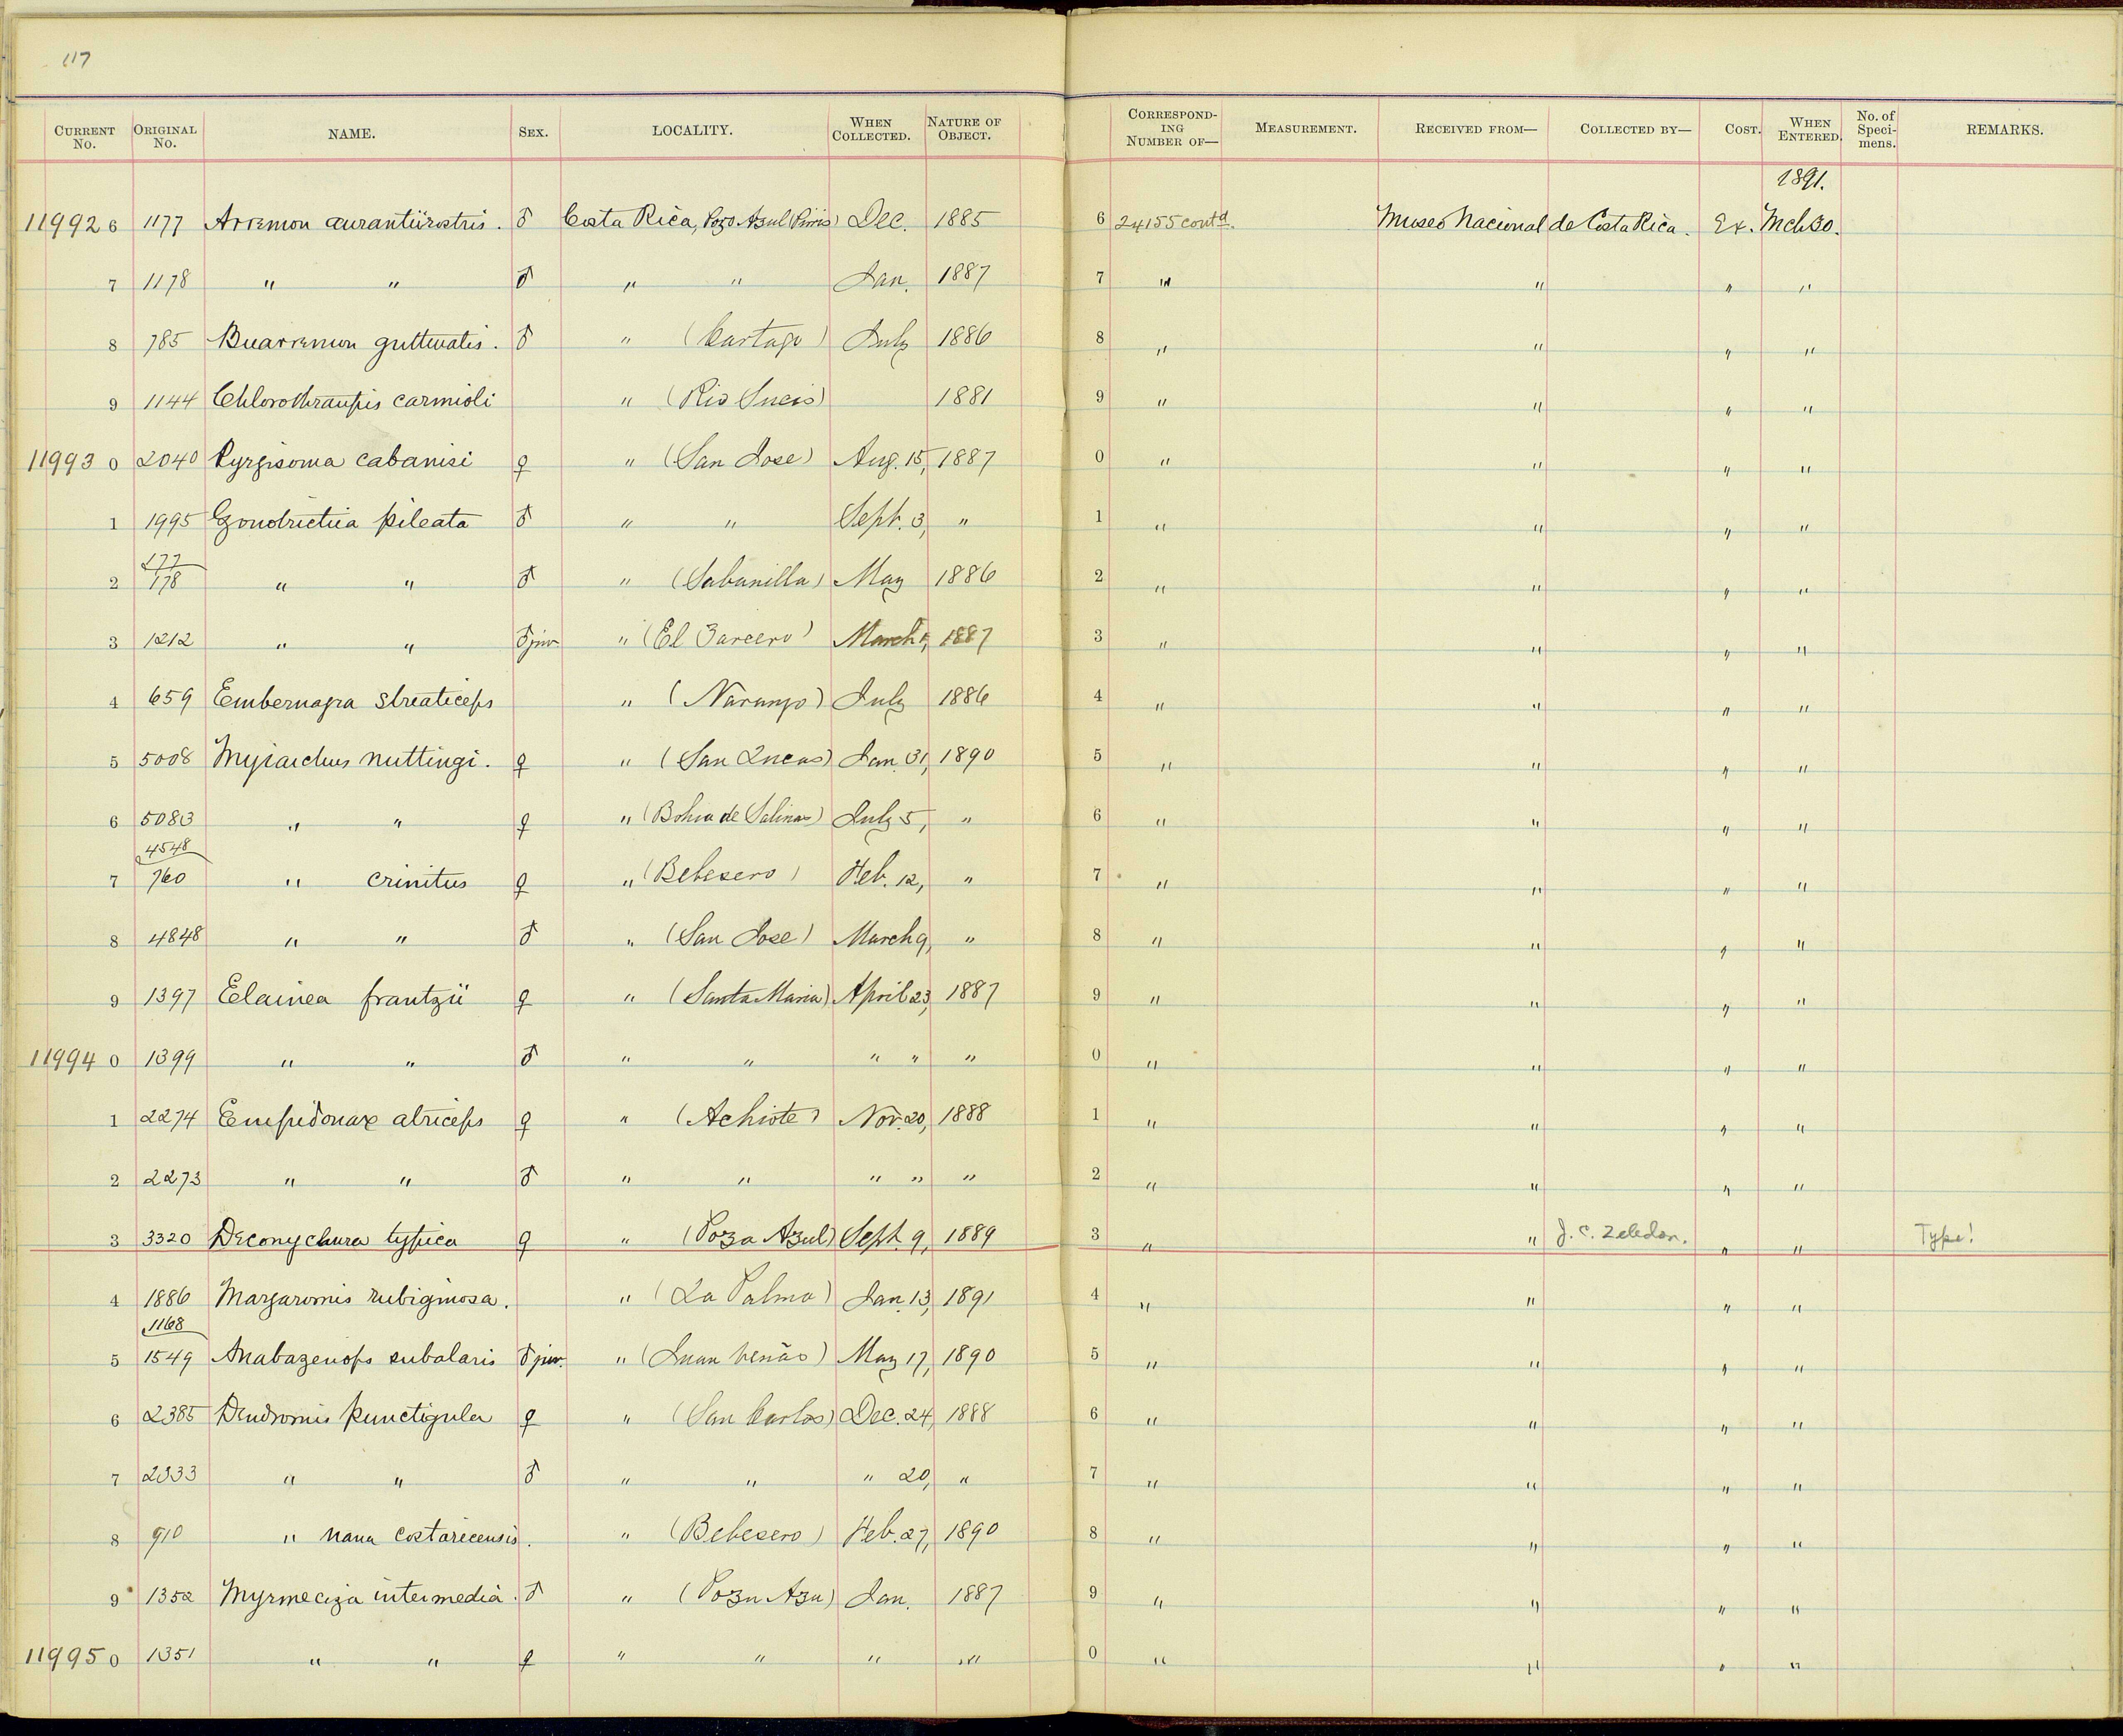 117
CURRENT No. ORIGINAL No. NAME. SEX. LOCALITY. WHEN COLLECTED. NATURE OF OBJECT. CORRESPONDING NUMBER OF— MEASUREMENT. RECEIVED FROM— COLLECTED BY— COST. WHEN ENTERED. No. of Specimens. REMARKS.
1891.
119926 1177 Arremon aurantiirostris. ♂ Costa Rica, Pozo Azul (Pirris) Dec. 1885 6 24155 contd. Museo Nacional de Costa Rica. Ex. Mch 30.
7 1178 " " ♂ " " Jan. 1887 7 " " " "
8 785 Buarremon gutturalis. ♂ " (Cartago) July 1886 8 " " " "
9 1144 Chlorothraupis carmioli " (Rio Sucio) 1881 9 " " " "
119930 2040 Pyrgisoma cabanisi ♀ " (San Jose) Aug. 15, 1887 0 " " " "
1 1995 Zonotrichia pileata ♂ " " Sept. 3, " 1 " " " "
277
2 178 " " ♂ " (Sabanilla) May 1886 2 " " " "
3 1212 " " ♂ juv " (El Zarcero) March 1887 3 " " " "
4 659 Embernagra striaticeps " (Naranjo) July 1886 4 " " " "
5 5008 Myiarchus nuttingi. ♀ " (San Lucas) Jan. 31, 1890 5 " " " "
6 5083 " " ♀ " (Bohia de Salinas) July 5, " 6 " " " "
4548
7 760 " crinitus ♀ " (Bebesero) Feb. 12, " 7 " " " "
8 4848 " " ♂ " (San Jose) March 9, " 8 " " " "
9 1397 Elainea frantzii ♀ " (Santa Maria) April 23, 1887 9 " " " "
119940 1399 " " ♂ " " " " " 0 " " " "
1 2274 Empidonax atriceps ♀ " (Achiote) Nov. 20, 1888 1 " " " "
2 2273 " " ♂ " " " " " 2 " " " "
3 3320 Deconychura typica ♀ " (Poza Azul) Sept. 9, 1889 3 " " J. C. Zeledon. " " Type!
4 1886 Margarornis rubiginosa. " (La Palma) Jan. 13, 1891 4 " " " "
1168
5 1549 Anabazenops subalaris ♂ juv. " (Juan Venão) May 17, 1890 5 " " " "
6 2385 Dendrornis punctigula ♀ " (San Carlos) Dec. 24, 1888 6 " " " "
7 2333 " " ♂ " " " 20, " 7 " " " "
8 910 " nana costaricensis. " (Bebesero) Feb. 27, 1890 8 " " " "
9 1352 Myrmeciza intermedia. ♂ " (Pozu Azu) Jan. 1887 9 " " " "
119950 1351 " " ♀ " " " " 0 " " " "